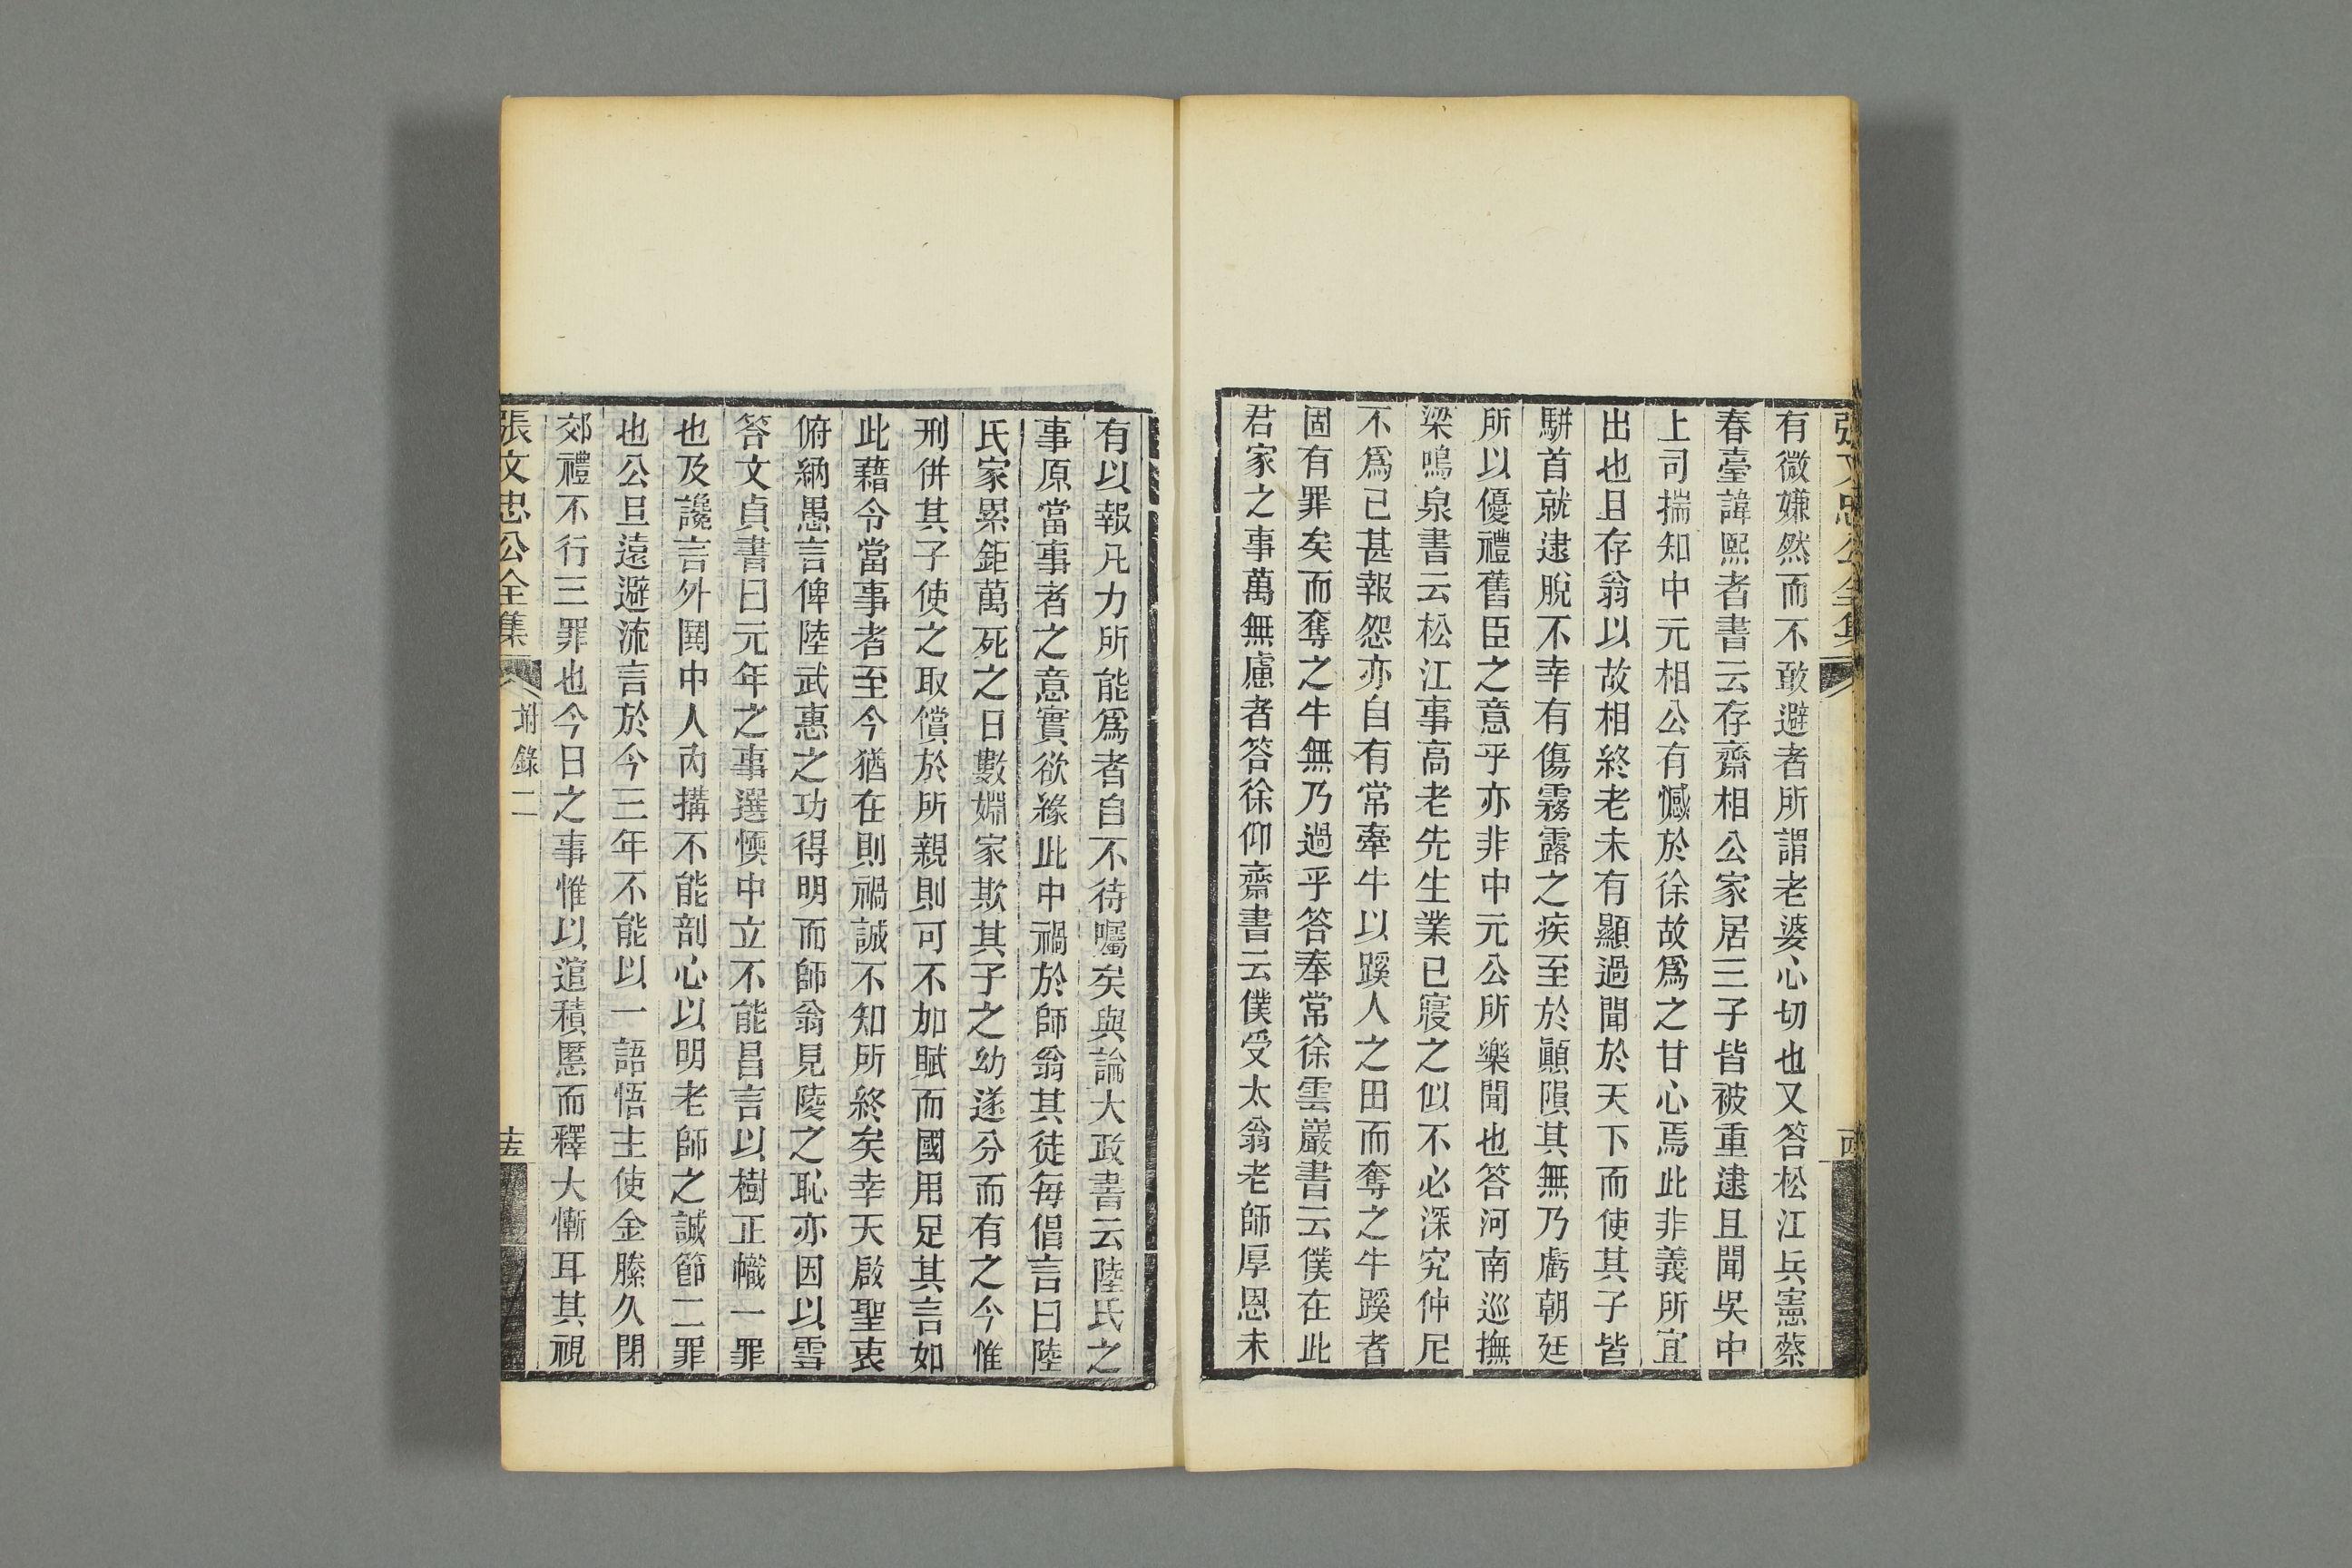 張文忠公全集
有微嫌然而不敢避者所謂老婆心切也又答松江兵憲蔡
春臺諱熙者書云存齋相公家居三子皆被重逮且聞吳中
上司揣知中元相公有憾於徐故爲之甘心焉此非義所宜
出也且存翁以故相終老未有顯過聞於天下而使其子皆
駢首就逮脫不幸有傷霧露之疾至於顚隕其無乃虧朝廷
所以優禮舊臣之意乎亦非中元公所樂聞也答河南巡撫
梁鳴泉書云松江事高老先生業已寢之似不必深究仲尼
不爲已甚報怨亦自有常牽牛以蹊人之田而奪之牛蹊者
固有罪矣而奪之牛無乃過乎答奉常徐雲巖書云僕在此
君家之事萬無慮者答徐仰齋書云僕受太翁老師厚恩未
有以報凡力所能爲者自不待囑矣與論大政書云陸氏之
事原當事者之意實欲緣此中禍於師翁其徒每倡言曰陸
氏家累鉅萬死之日數婣家欺其子之幼遂分而有之今惟
刑併其子使之取償於所親則可不加賦而國用足其言如
此藉令當事者至今猶在則禍誠不知所終矣幸天啟聖衷
俯納愚言俾陸武惠之功得明而師翁見陵之恥亦因以雪
答文貞書曰元年之事選愞中立不能昌言以樹正幟一罪
也及讒言外鬨中人內搆不能剖心以明老師之誠節二罪
也公旦遠避流言於今三年不能以一語悟主使金縢久閉
郊禮不行三罪也今日之事惟以逭積慝而釋大慚耳其視
張文忠公全集 附錄二 十五